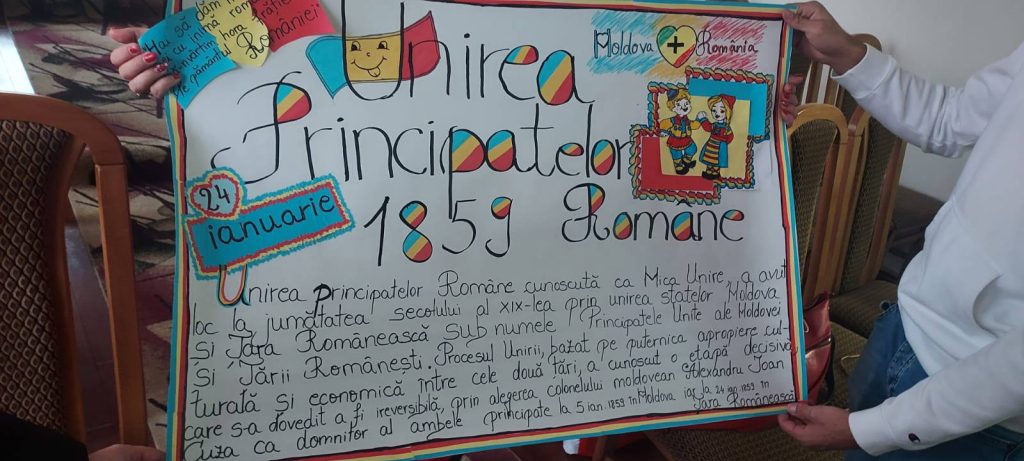 Hai să dăm
cu inimă rom
învârtim hora frăției
pe pământul României
Unirea
Moldova + România
Principatelor
24
ianuarie
1859 Române
Unirea Principatelor Române cunoscută ca Mica Unire, a avut
loc la jumătatea secolului al XIX-lea prin unirea statelor Moldova
și Țara Românească sub numele Principatele Unite ale Moldovei
și Țării Românești. Procesul Unirii, bazat pe puternica apropiere cul-
turală și economică între cele două țări, a cunoscut o etapă decisivă,
care s-a dovedit a fi ireversibilă, prin alegerea colonelului moldovean Alexandru Ioan
Cuza ca domnitor al ambele principate la 5 ian. 1859 în Moldova iar la 24 ian 1859 în
Țara Românească